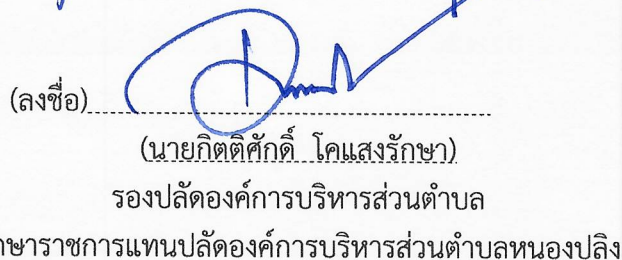 (ลงชื่อ)
(นายกิตติศักดิ์ โคแสงรักษา)
รองปลัดองค์การบริหารส่วนตำบล
กษาราชการแทนปลัดองค์การบริหารส่วนตำบลหนองปลิง